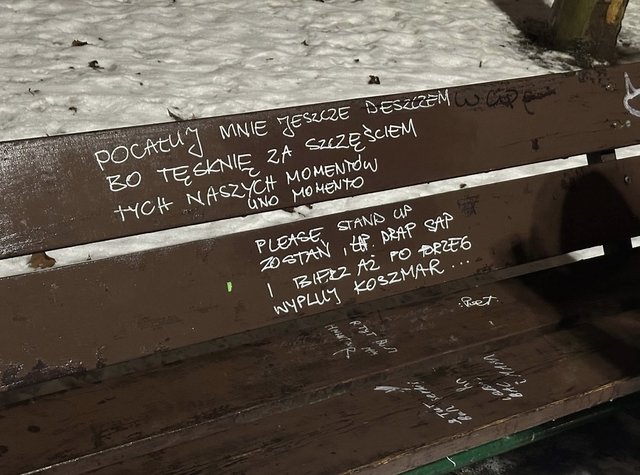 POCAŁUJ MNIE JESZCZE DESZCZEM
BO TĘSKNIĘ ZA SZCZĘŚCIEM
TYCH NASZYCH MOMENTÓW
UNO MOMENTO
PLEASE, STAND UP
ZOSTAŃ I DRAP SAP
I BIERZ AŻ PO BRZEG
WYPLUJ KOSZMAR ...
Poet.